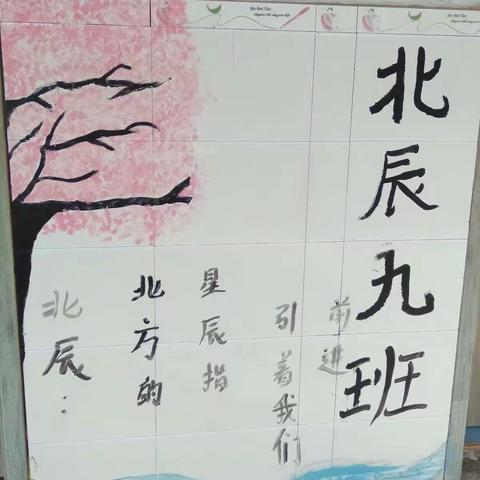 北辰九班
北辰：
北方的
星辰指
引着我们
前进